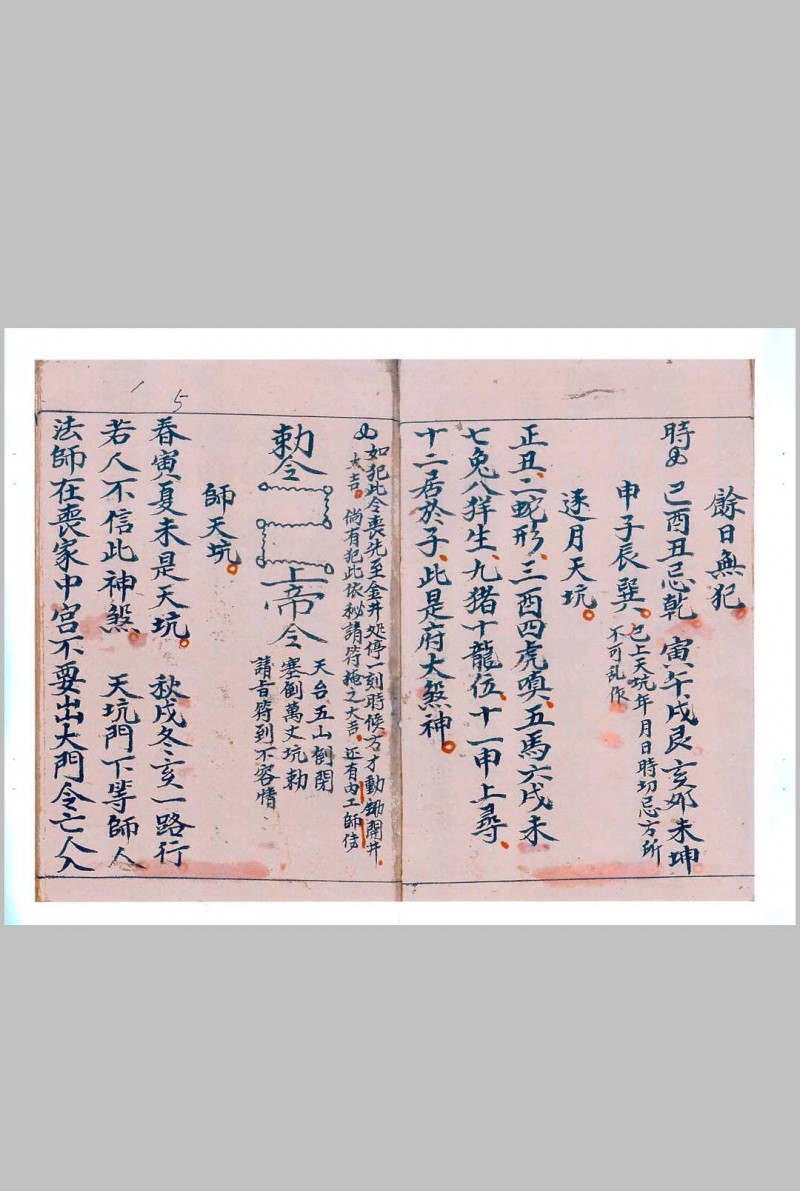 餘日無犯
時凶 巳酉丑忌乾 寅午戌艮 亥卯未坤
申子辰巽 已上天坑年月日時切忌方所
不可乱作
逐月天坑
正丑二蛇形三酉四虎嗔五馬六戌未
七兔八羊生九猪十龍伍十一申上尋
十二居於子此是府大煞神
凶如犯此令喪先至金井处停一刻時候方才動鋤開井
大吉 倘有犯此依秘請符掩之大吉 还有内工師傅
勅令
上帝令
天台五山倒閉
塞倒萬丈坑勅
請旨符到不容情
師天坑
春寅夏未是天坑 秋戌冬亥一路行
若人不信此神煞 天坑門下等師人
法師在喪家中宮不要出大門令亡人入
15